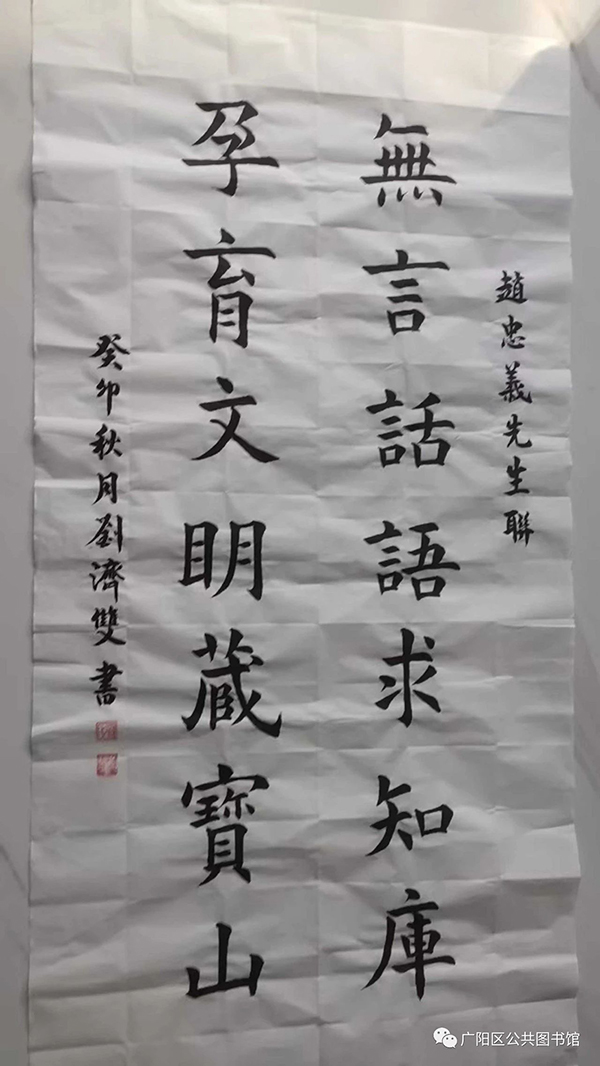 趙忠義先生聯
無言話語求知庫
孕育文明蔵寶山
癸卯秋月劉濟雙書
广阳区公共图书馆